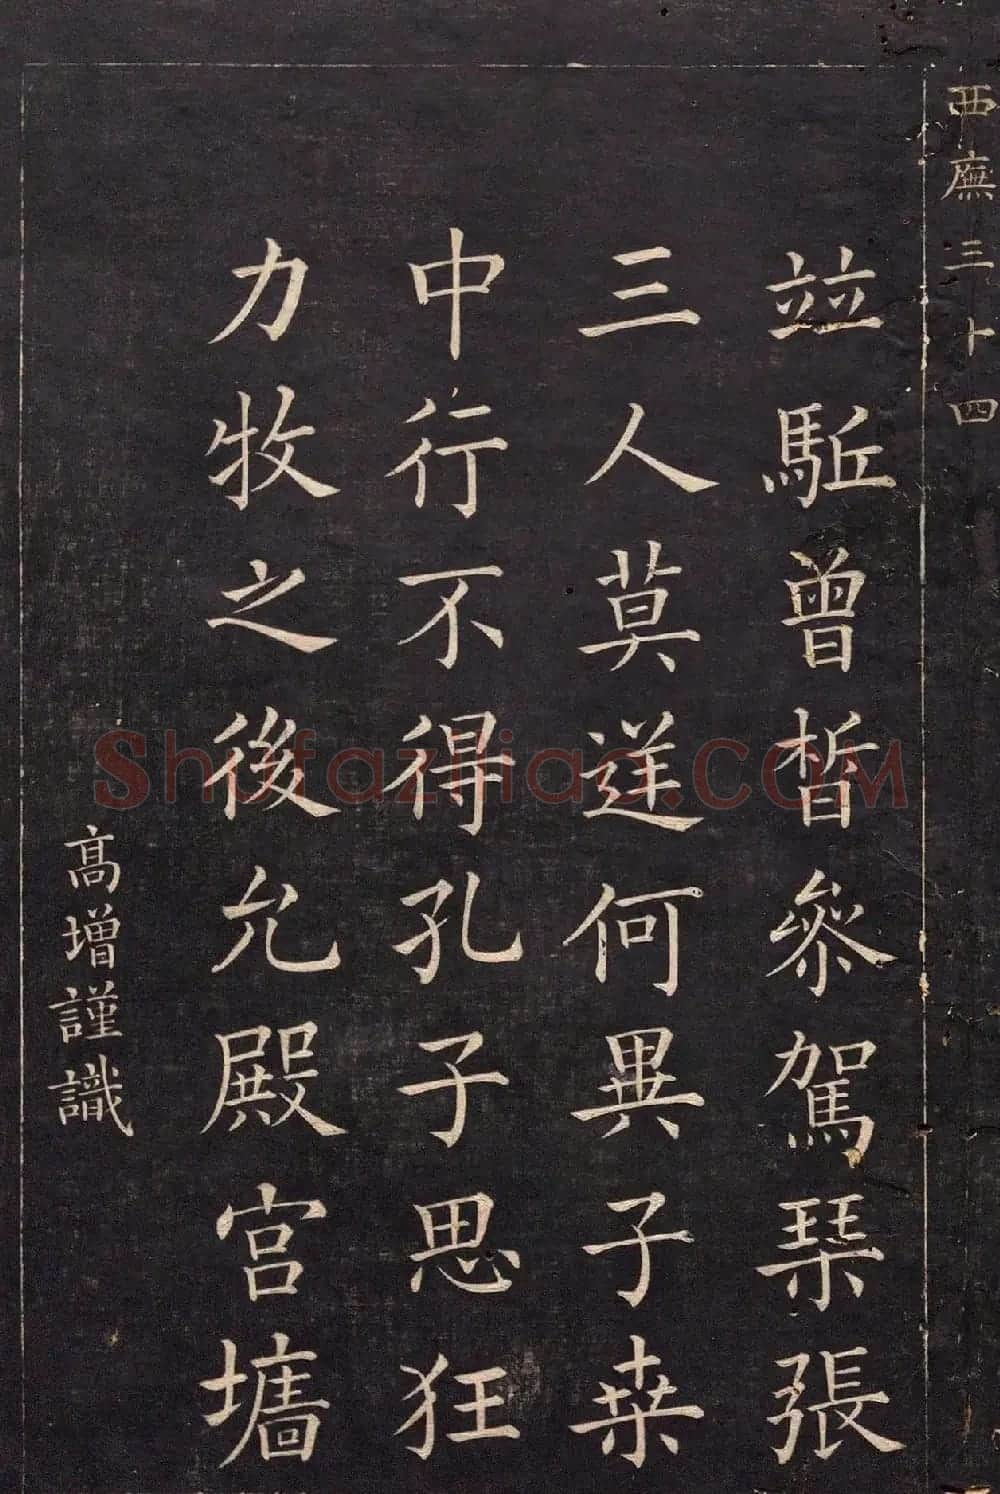 西廡三十四
竝駈曾晳叅駕琹張
三人莫逆何異子桒
中行不得孔子思狂
力牧之後允殿宮墻
高增謹識
Shufaziliao.COM